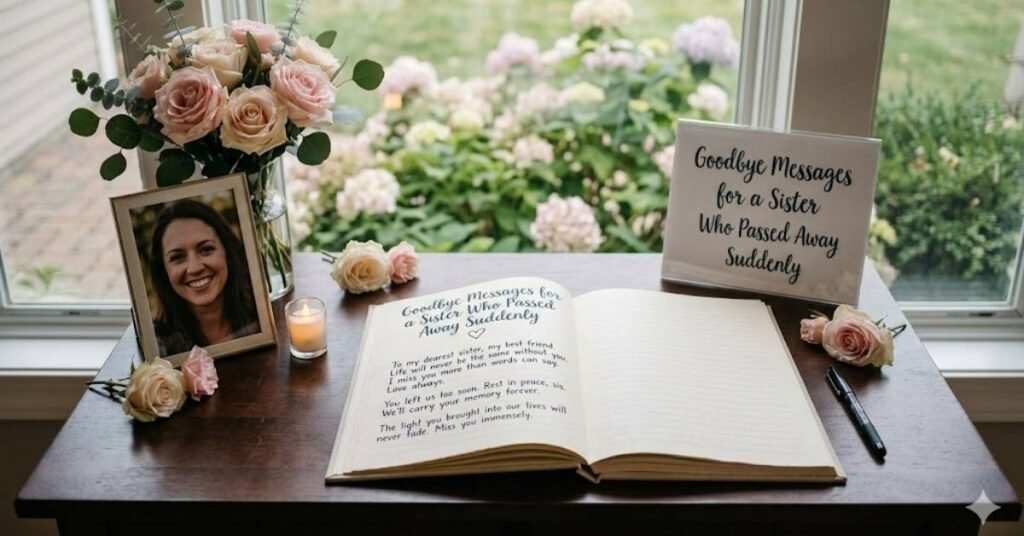 Goodbye Messages
for a Sister
Who Passed Away
Suddenly
Goodbye Messages for
a Sister Who Passed
Away Suddenly
To my dearest sister, my best friend.
Life will never be the same without you.
I miss you more than words can say.
Love always.
You left us too soon. Rest in peace, sis.
We'll carry your memory forever.
The light you brought into our lives will
never fade. Miss you immensely.